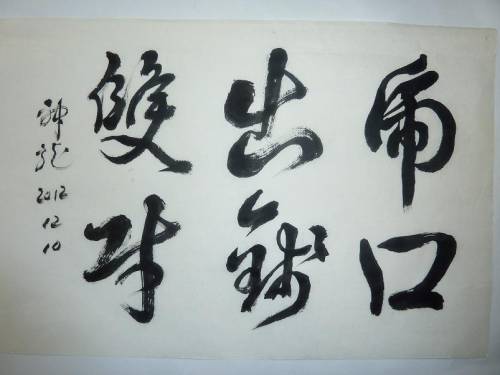 虎口
出錢
雙財
神龍
2012
12
10